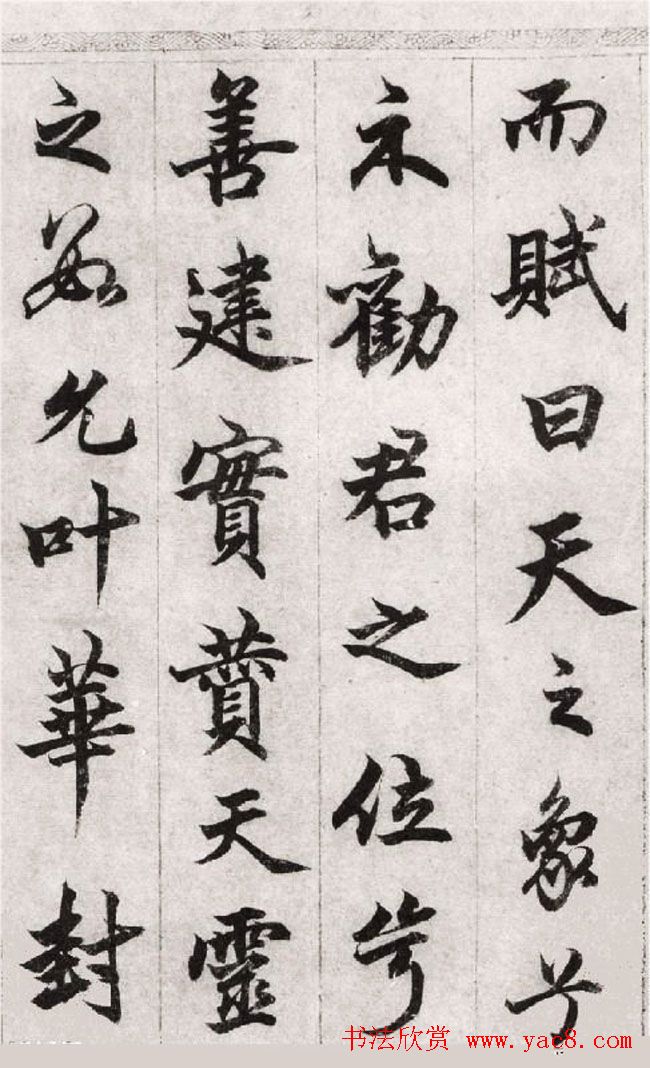 而賦曰天之象兮
示勸君之位兮
善建實蕡天靈
之數允叶華封
书法欣赏 www.yac8.com